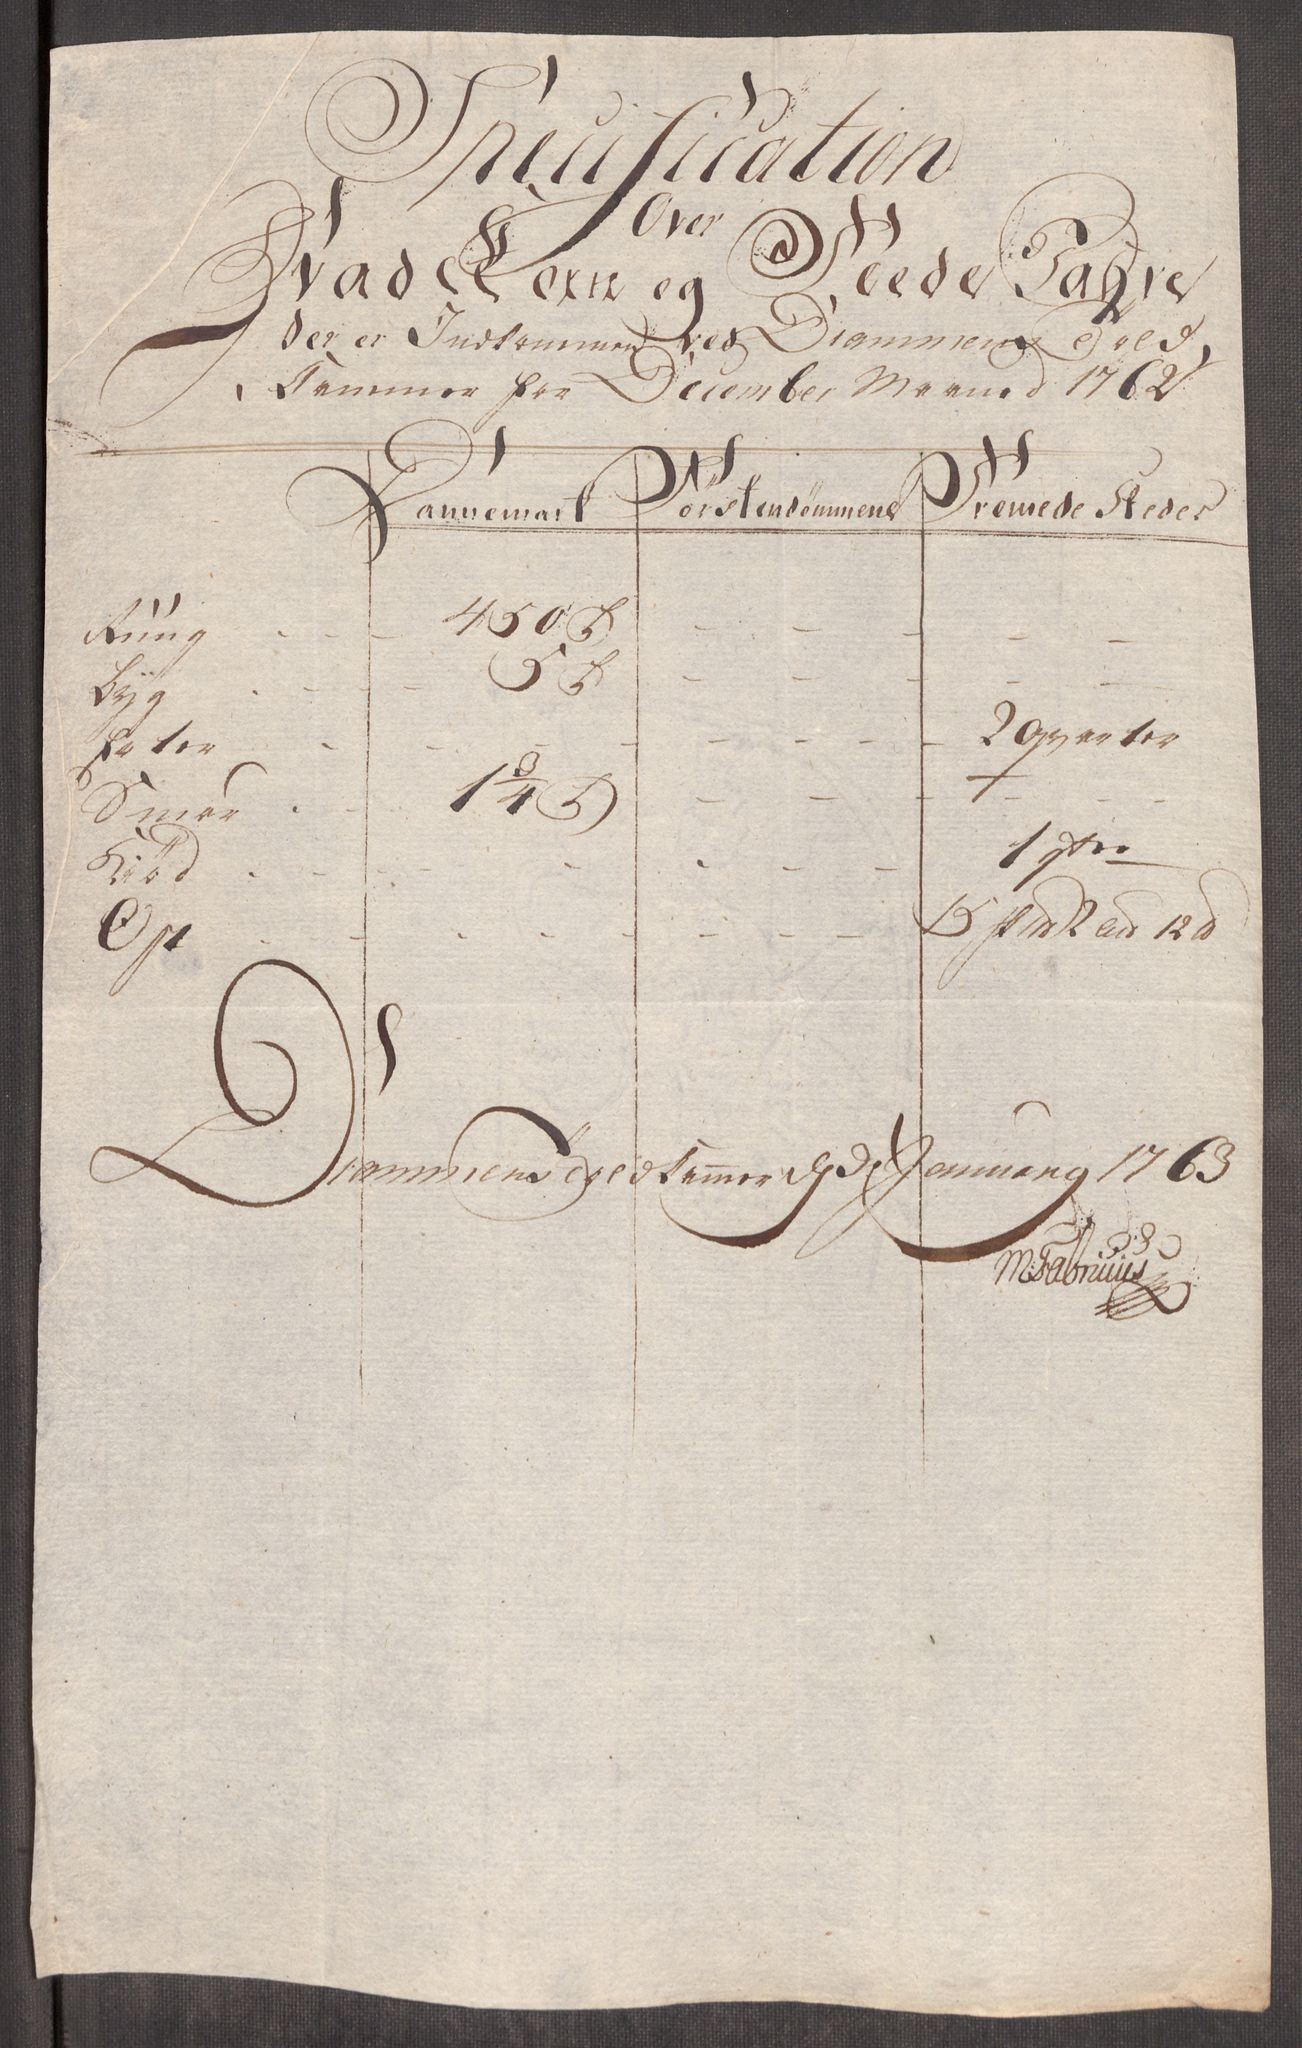 Specification
Over
Hvad Korn og Feede Vahre
der er Indkommen ved Drammens Told
Kammer for December Maaned 1762
Dannemark Förstendömmene Fremede Steder
Rüüg 450 T
Byg 5 T
Erter 2 qvarter
Smör 1 3/4 T
Kiöd 1 qtr
Ost 15
Drammens Toldkammer d 3 January 1763
MFabricius